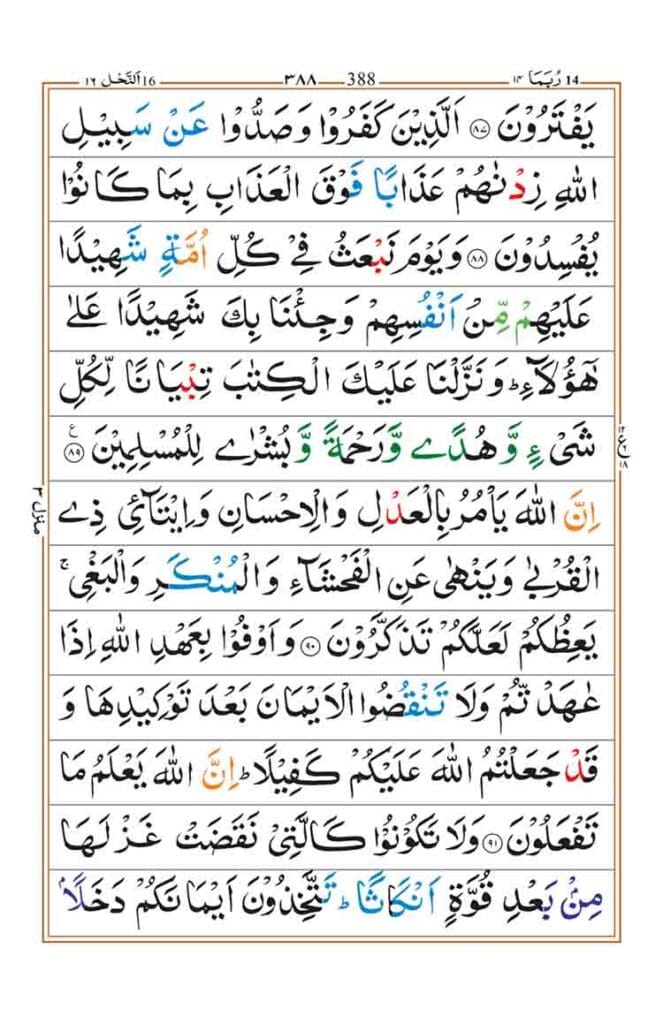 ١٤ رُبَمَا 14 388 ٣٨٨ 16 اَلنَّحْل ١٦
يَفْتَرُوْنَ ﴿۸۷﴾ اَلَّذِيْنَ كَفَرُوْا وَصَدُّوْا عَنْ سَبِيْلِ
اللّٰهِ زِدْنٰهُمْ عَذَابًا فَوْقَ الْعَذَابِ بِمَا كَانُوْا
يُفْسِدُوْنَ ﴿۸۸﴾ وَيَوْمَ نَبْعَثُ فِيْ كُلِّ اُمَّةٍ شَهِيْدًا
عَلَيْهِمْ مِّنْ اَنْفُسِهِمْ وَجِئْنَا بِكَ شَهِيْدًا عَلٰى
هٰٓؤُلَآءِ ؕ وَنَزَّلْنَا عَلَيْكَ الْكِتٰبَ تِبْيَانًا لِّكُلِّ
شَيْءٍ وَّهُدًى وَّرَحْمَةً وَّبُشْرٰى لِلْمُسْلِمِيْنَ ﴿۸۹﴾ ع
اِنَّ اللّٰهَ يَاْمُرُ بِالْعَدْلِ وَالْاِحْسَانِ وَاِيْتَآئِ ذِى
الْقُرْبٰى وَيَنْهٰى عَنِ الْفَحْشَآءِ وَالْمُنْكَرِ وَالْبَغْيِ ۚ
يَعِظُكُمْ لَعَلَّكُمْ تَذَكَّرُوْنَ ﴿۹۰﴾ وَاَوْفُوْا بِعَهْدِ اللّٰهِ اِذَا
عٰهَدْتُّمْ وَلَا تَنْقُضُوا الْاَيْمَانَ بَعْدَ تَوْكِيْدِهَا وَ
قَدْ جَعَلْتُمُ اللّٰهَ عَلَيْكُمْ كَفِيْلًا ؕ اِنَّ اللّٰهَ يَعْلَمُ مَا
تَفْعَلُوْنَ ﴿۹۱﴾ وَلَا تَكُوْنُوْا كَالَّتِيْ نَقَضَتْ غَزْلَهَا
مِنْۢ بَعْدِ قُوَّةٍ اَنْكَاثًا ؕ تَتَّخِذُوْنَ اَيْمَانَكُمْ دَخَلًاۢ
منزل ٣